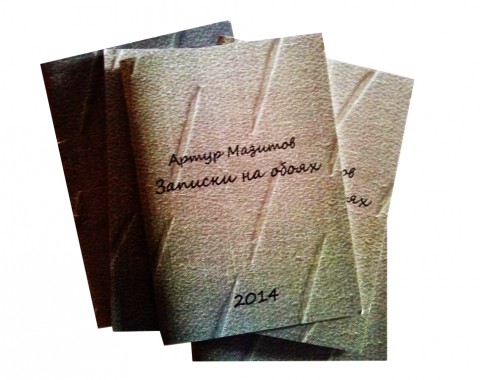 Артур Мазитов
Записки на обоях
2014
ов
оях